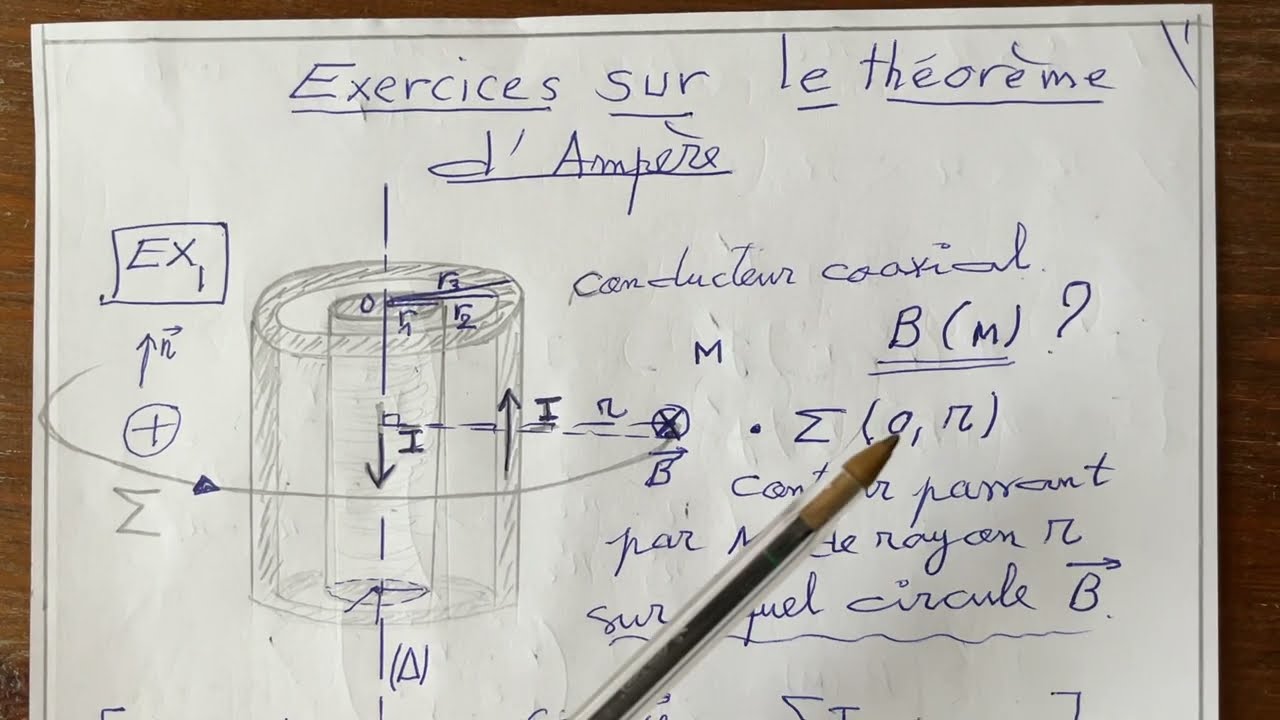 Exercices sur le théorème
d'Ampère
EX1
conducteur coaxial.
B(M) ?
O r1 r2 r3
n
M
I
I r
B
Σ
• Σ (O, r)
passant
par de rayon r
sur circule B.
(Δ)